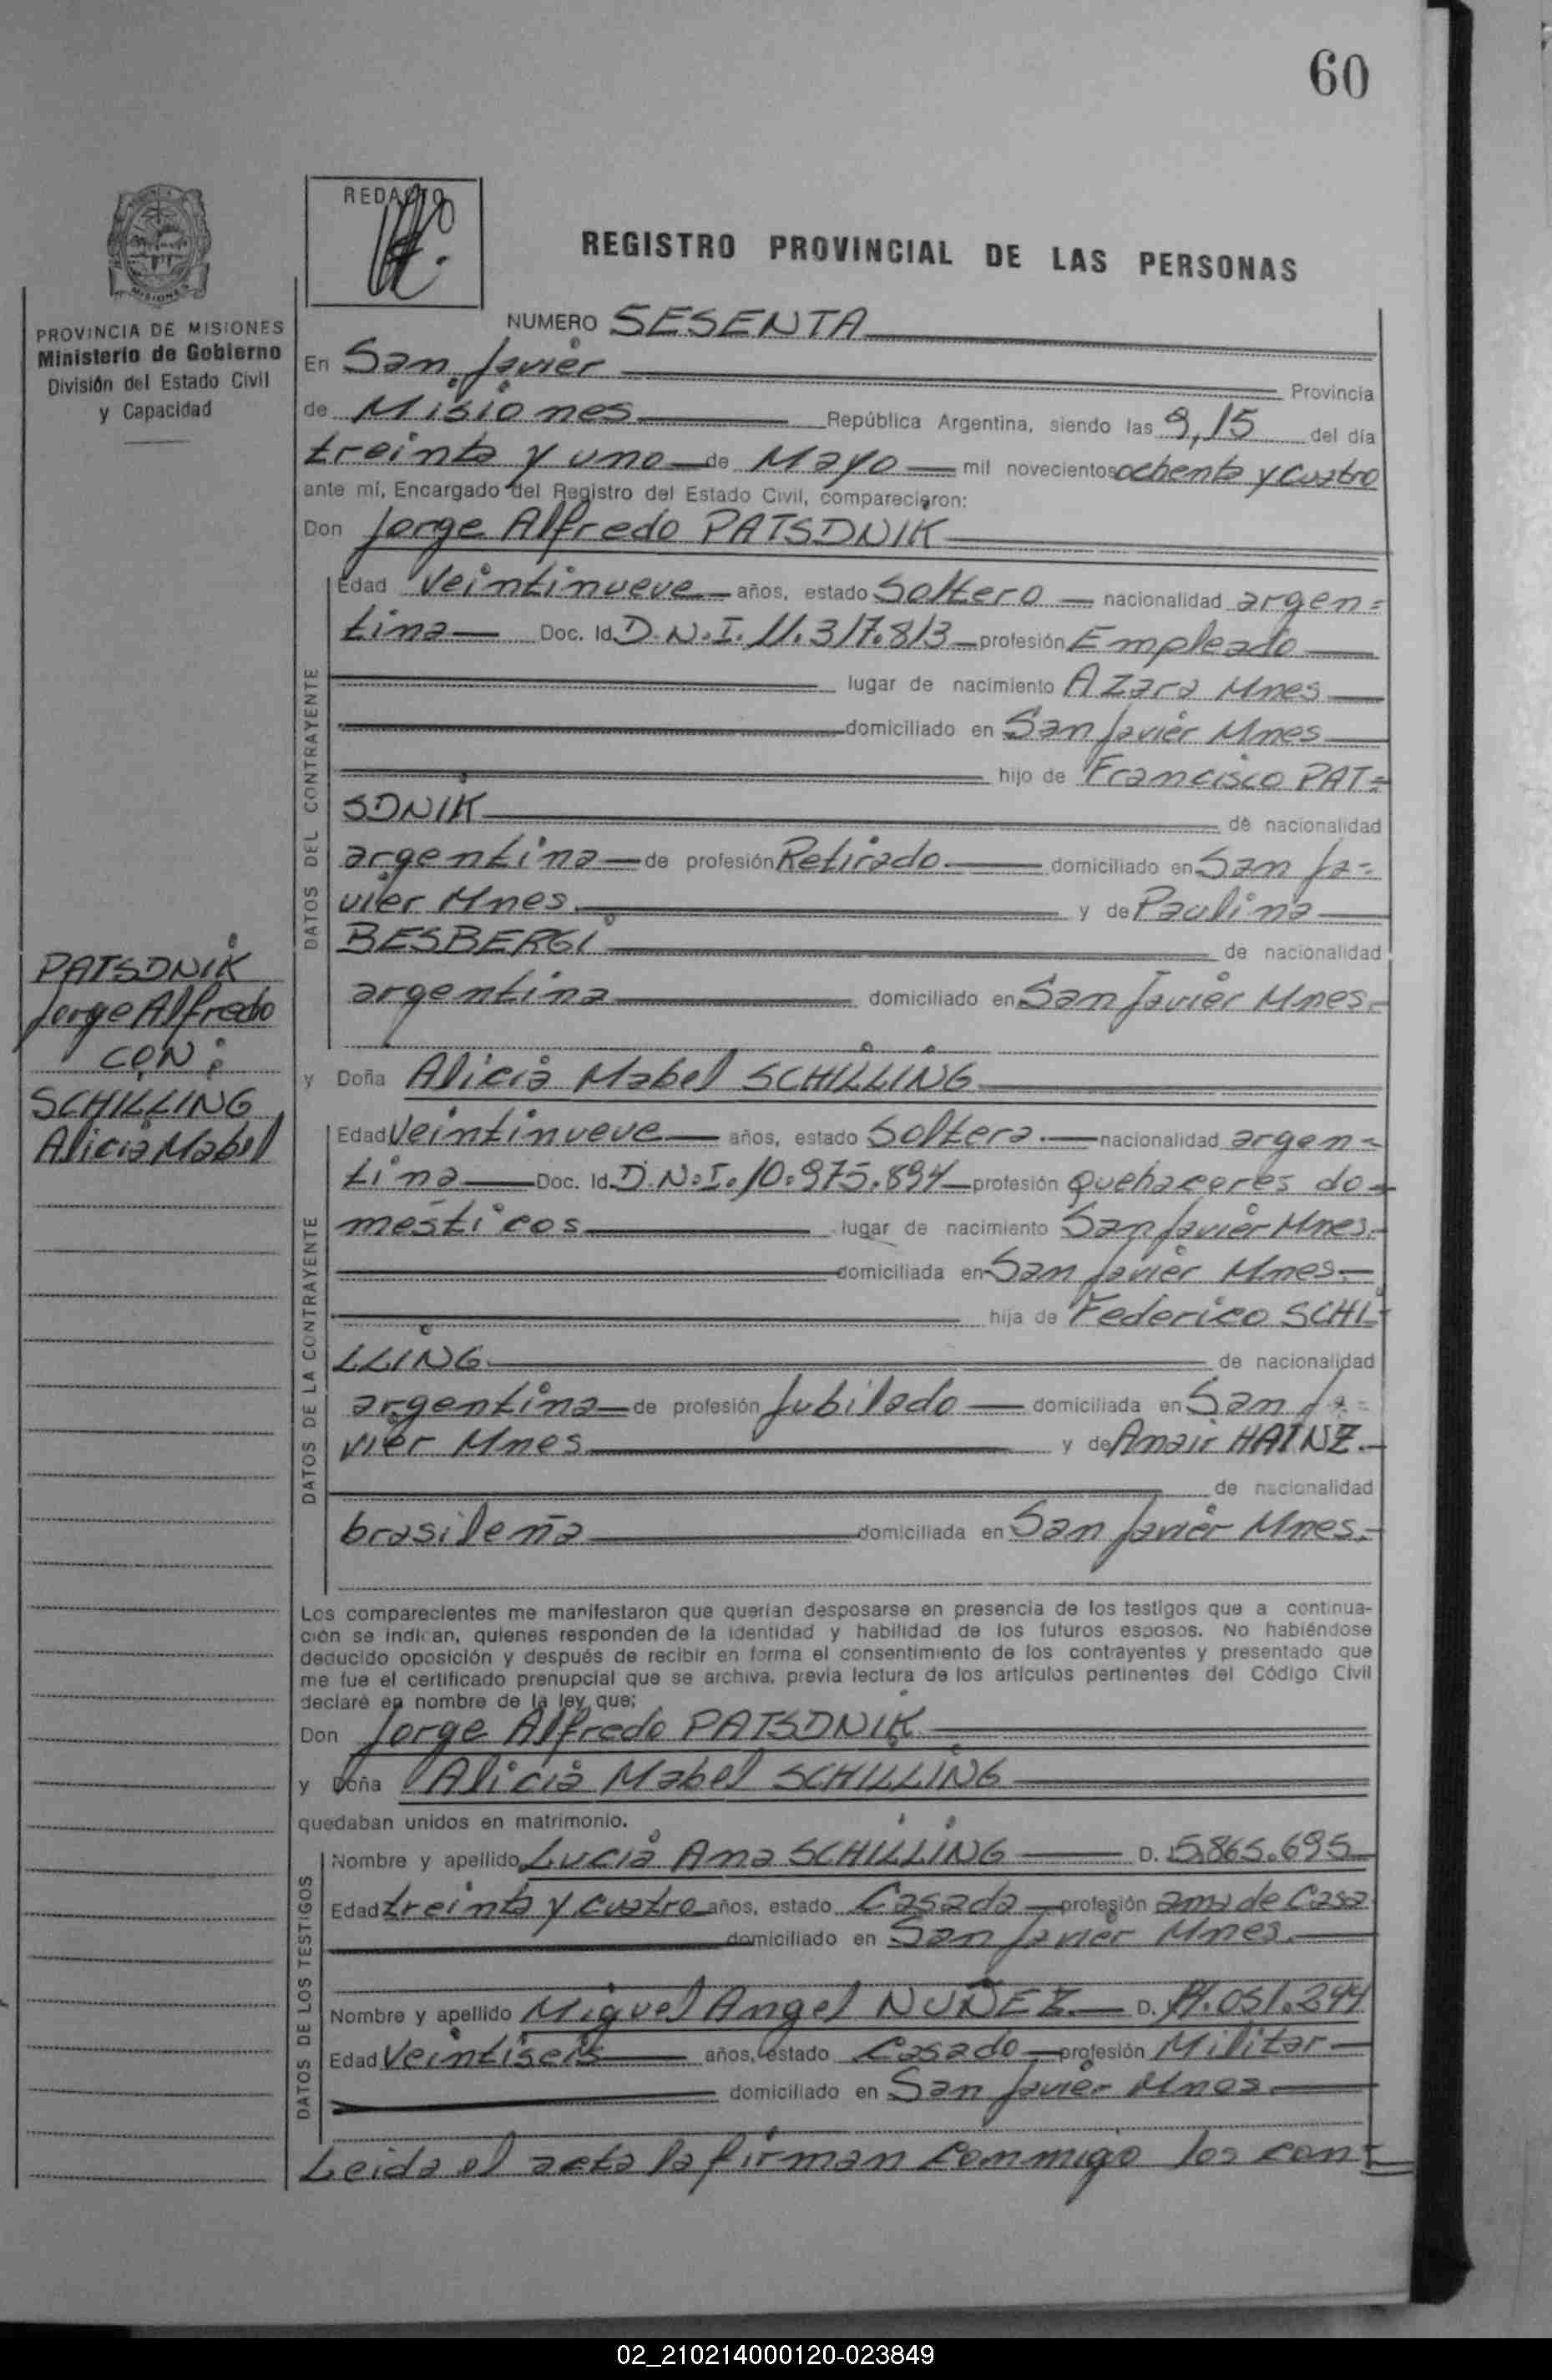 60
REDACTO
REGISTRO PROVINCIAL DE LAS PERSONAS
PROVINCIA DE MISIONES
Ministerio de Gobierno
División del Estado Civil
y Capacidad
NUMERO SESENTA
En San Javier Provincia
de Misiones República Argentina, siendo las 9,15 del día
treinta y uno de Mayo mil novecientos ochenta y cuatro
ante mí, Encargado del Registro del Estado Civil, comparecieron:
Don Jorge Alfredo PATSDNIK
DATOS DEL CONTRAYENTE
Edad Veintinueve años, estado Soltero nacionalidad argen=
tina Doc. Id. D.N.I. 11.317.813 profesión Empleado
lugar de nacimiento Azara Mnes
domiciliado en San Javier Mnes
hijo de Francisco PAT=
SDNIK de nacionalidad
argentina de profesión Retirado domiciliado en San Ja=
vier Mnes. y de Paulina
BESBERGI de nacionalidad
argentina domiciliado en San Javier Mnes.
PATSDNIK
Jorge Alfredo
CON:
SCHILLING
Alicia Mabel
y Doña Alicia Mabel SCHILLING
DATOS DE LA CONTRAYENTE
Edad Veintinueve años, estado Soltera. nacionalidad argen=
tina Doc. Id. D.N.I. 10.975.894 profesión quehaceres do=
mésticos lugar de nacimiento San Javier Mnes.
domiciliada en San Javier Mnes.
hija de Federico SCHI=
LLING de nacionalidad
argentina de profesión Jubilado domiciliada en San Ja=
vier Mnes y de Anair HAINZ.
de nacionalidad
brasileña domiciliada en San Javier Mnes.
Los comparecientes me manifestaron que querían desposarse en presencia de los testigos que a continua-
ción se indican, quienes responden de la identidad y habilidad de los futuros esposos. No habiéndose
deducido oposición y después de recibir en forma el consentimiento de los contrayentes y presentado que
me fue el certificado prenupcial que se archiva, previa lectura de los artículos pertinentes del Código Civil
declaré en nombre de la ley que:
Don Jorge Alfredo PATSDNIK
y Doña Alicia Mabel SCHILLING
quedaban unidos en matrimonio.
DATOS DE LOS TESTIGOS
Nombre y apellido Lucia Ana SCHILLING D. 5.865.695
Edad treinta y cuatro años, estado Casada profesión ama de Casa
domiciliado en San Javier Mnes.
Nombre y apellido Miguel Angel NUÑEZ D. 14.051.244
Edad Veintiseis años, estado Casado profesión Militar
domiciliado en San Javier Mnes
Leida el acta la firman conmigo los con=
02_210214000120-023849